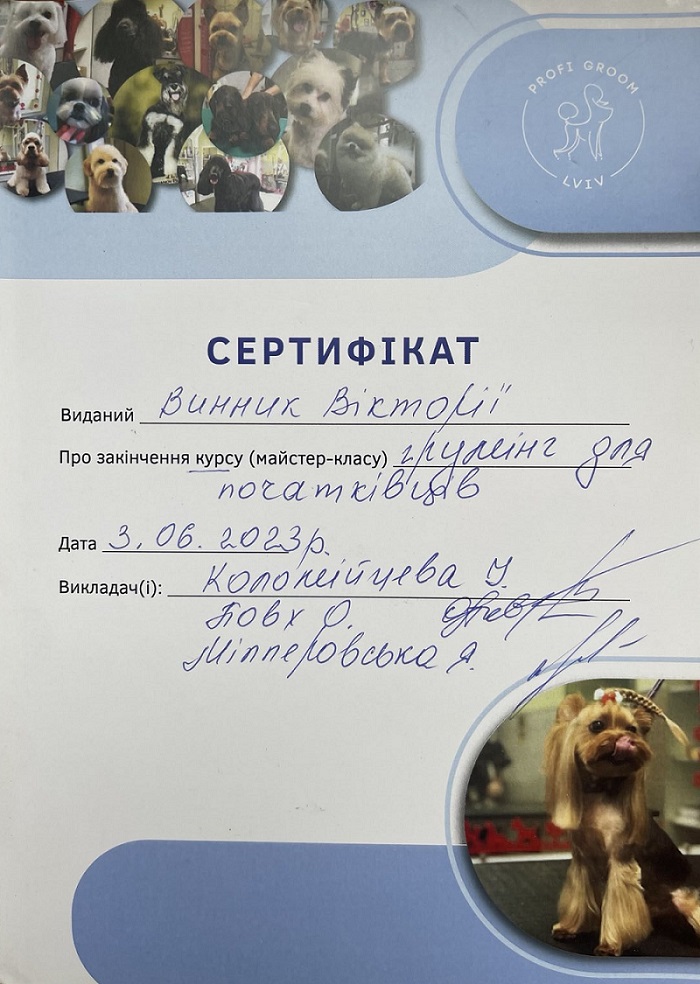 PROFI GROOM
LVIV
СЕРТИФІКАТ
Виданий Винник Вікторії
Про закінчення курсу (майстер-класу) грумінг для
початківців
Дата 3.06.2023р.
Викладач(і): Коломійцева У.
Повх О.
Міллеровська Я.